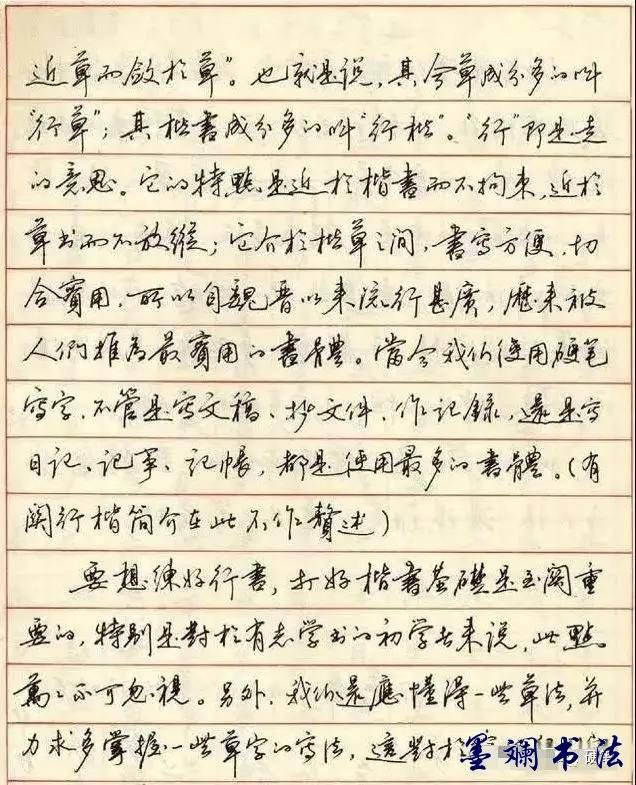 近草而敛於草”。也就是说，其今草成分多的叫
“行草”；其楷書成分多的叫“行楷”。“行”即是走
的意思。它的特點是近於楷書而不拘束，近於
草书而不放縱；它介於楷草之間，書寫方便，切
合實用，所以自魏晋以来流行甚廣，歷来被
人們推為最實用的書體。當今我们使用硬笔
寫字，不管是寫文稿、抄文件、作記録，還是寫
日記、記事、記帳，都是使用最多的書體。（有
関行楷简介在此不作贅述）
要想練好行書，打好楷書基礎是至関重
要的，特别是對於有志学书的初学者来说，此點
萬萬不可忽視。另外，我们還應懂得一些草法，并
力求多掌握一些草字的寫法，這對於
墨斓书法